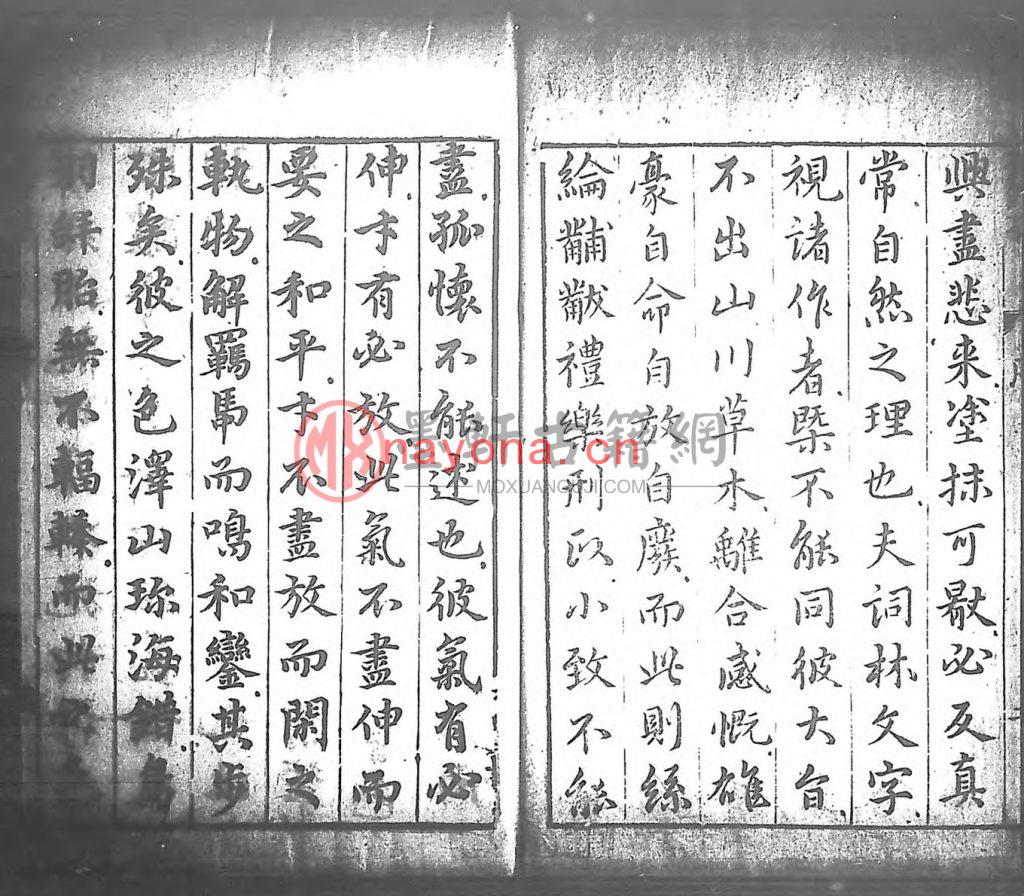 興盡悲来塗抹可歇必反真
常自然之理也夫詞林文字
視諸作者槩不能同彼大旨
不出山川草木離合感慨雄
豪自命自放自廢而此則絲
綸黼黻禮樂刑政小致不能
盡孤懷不能述也彼氣有必
伸才有必放此氣不盡伸而
要之和平才不盡放而閑之
軌物解羈馬而鳴和鑾其步
殊矣彼之色澤山珍海錯為
胎無不輻輳而此
墨軒古籍網
nayona.cn
MOXUANGUJI.COM